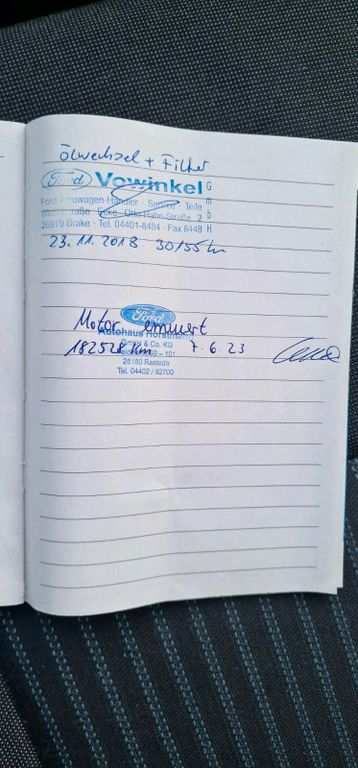 Ölwechsel + Filter
Ford Vowinkel GmbH
Ford Neuwagen-Händler Service Teile
Ecke Otto-Hahn-Straße 2
26919 Brake · Tel. 04401-8484 · Fax 8448
23.11.2018 30155 km
Ford
Motor erneuert
Autohaus Horstmann
GmbH & Co. KG
182528 Km 7.6.23
- 101
26180 Rastede
Tel. 04402 / 92700